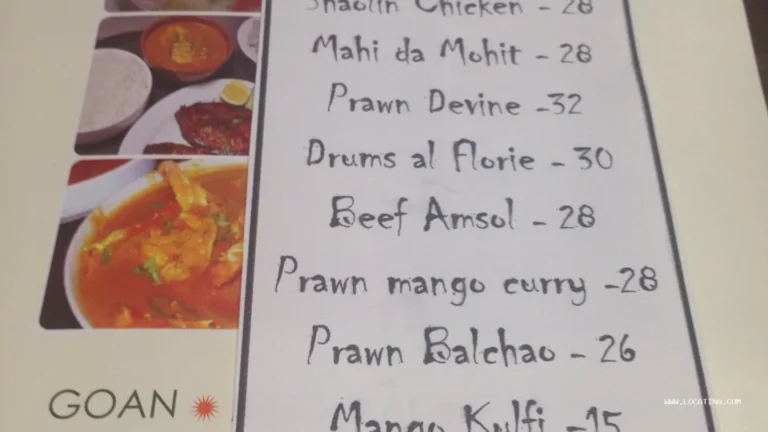 Shaolin Chicken - 28
Mahi da Mohit - 28
Prawn Devine -32
Drums al Florie - 30
Beef Amsol - 28
Prawn mango curry -28
Prawn Balchao - 26
Mango Kulfi -15
GOAN
WWW.LOCATINO.COM